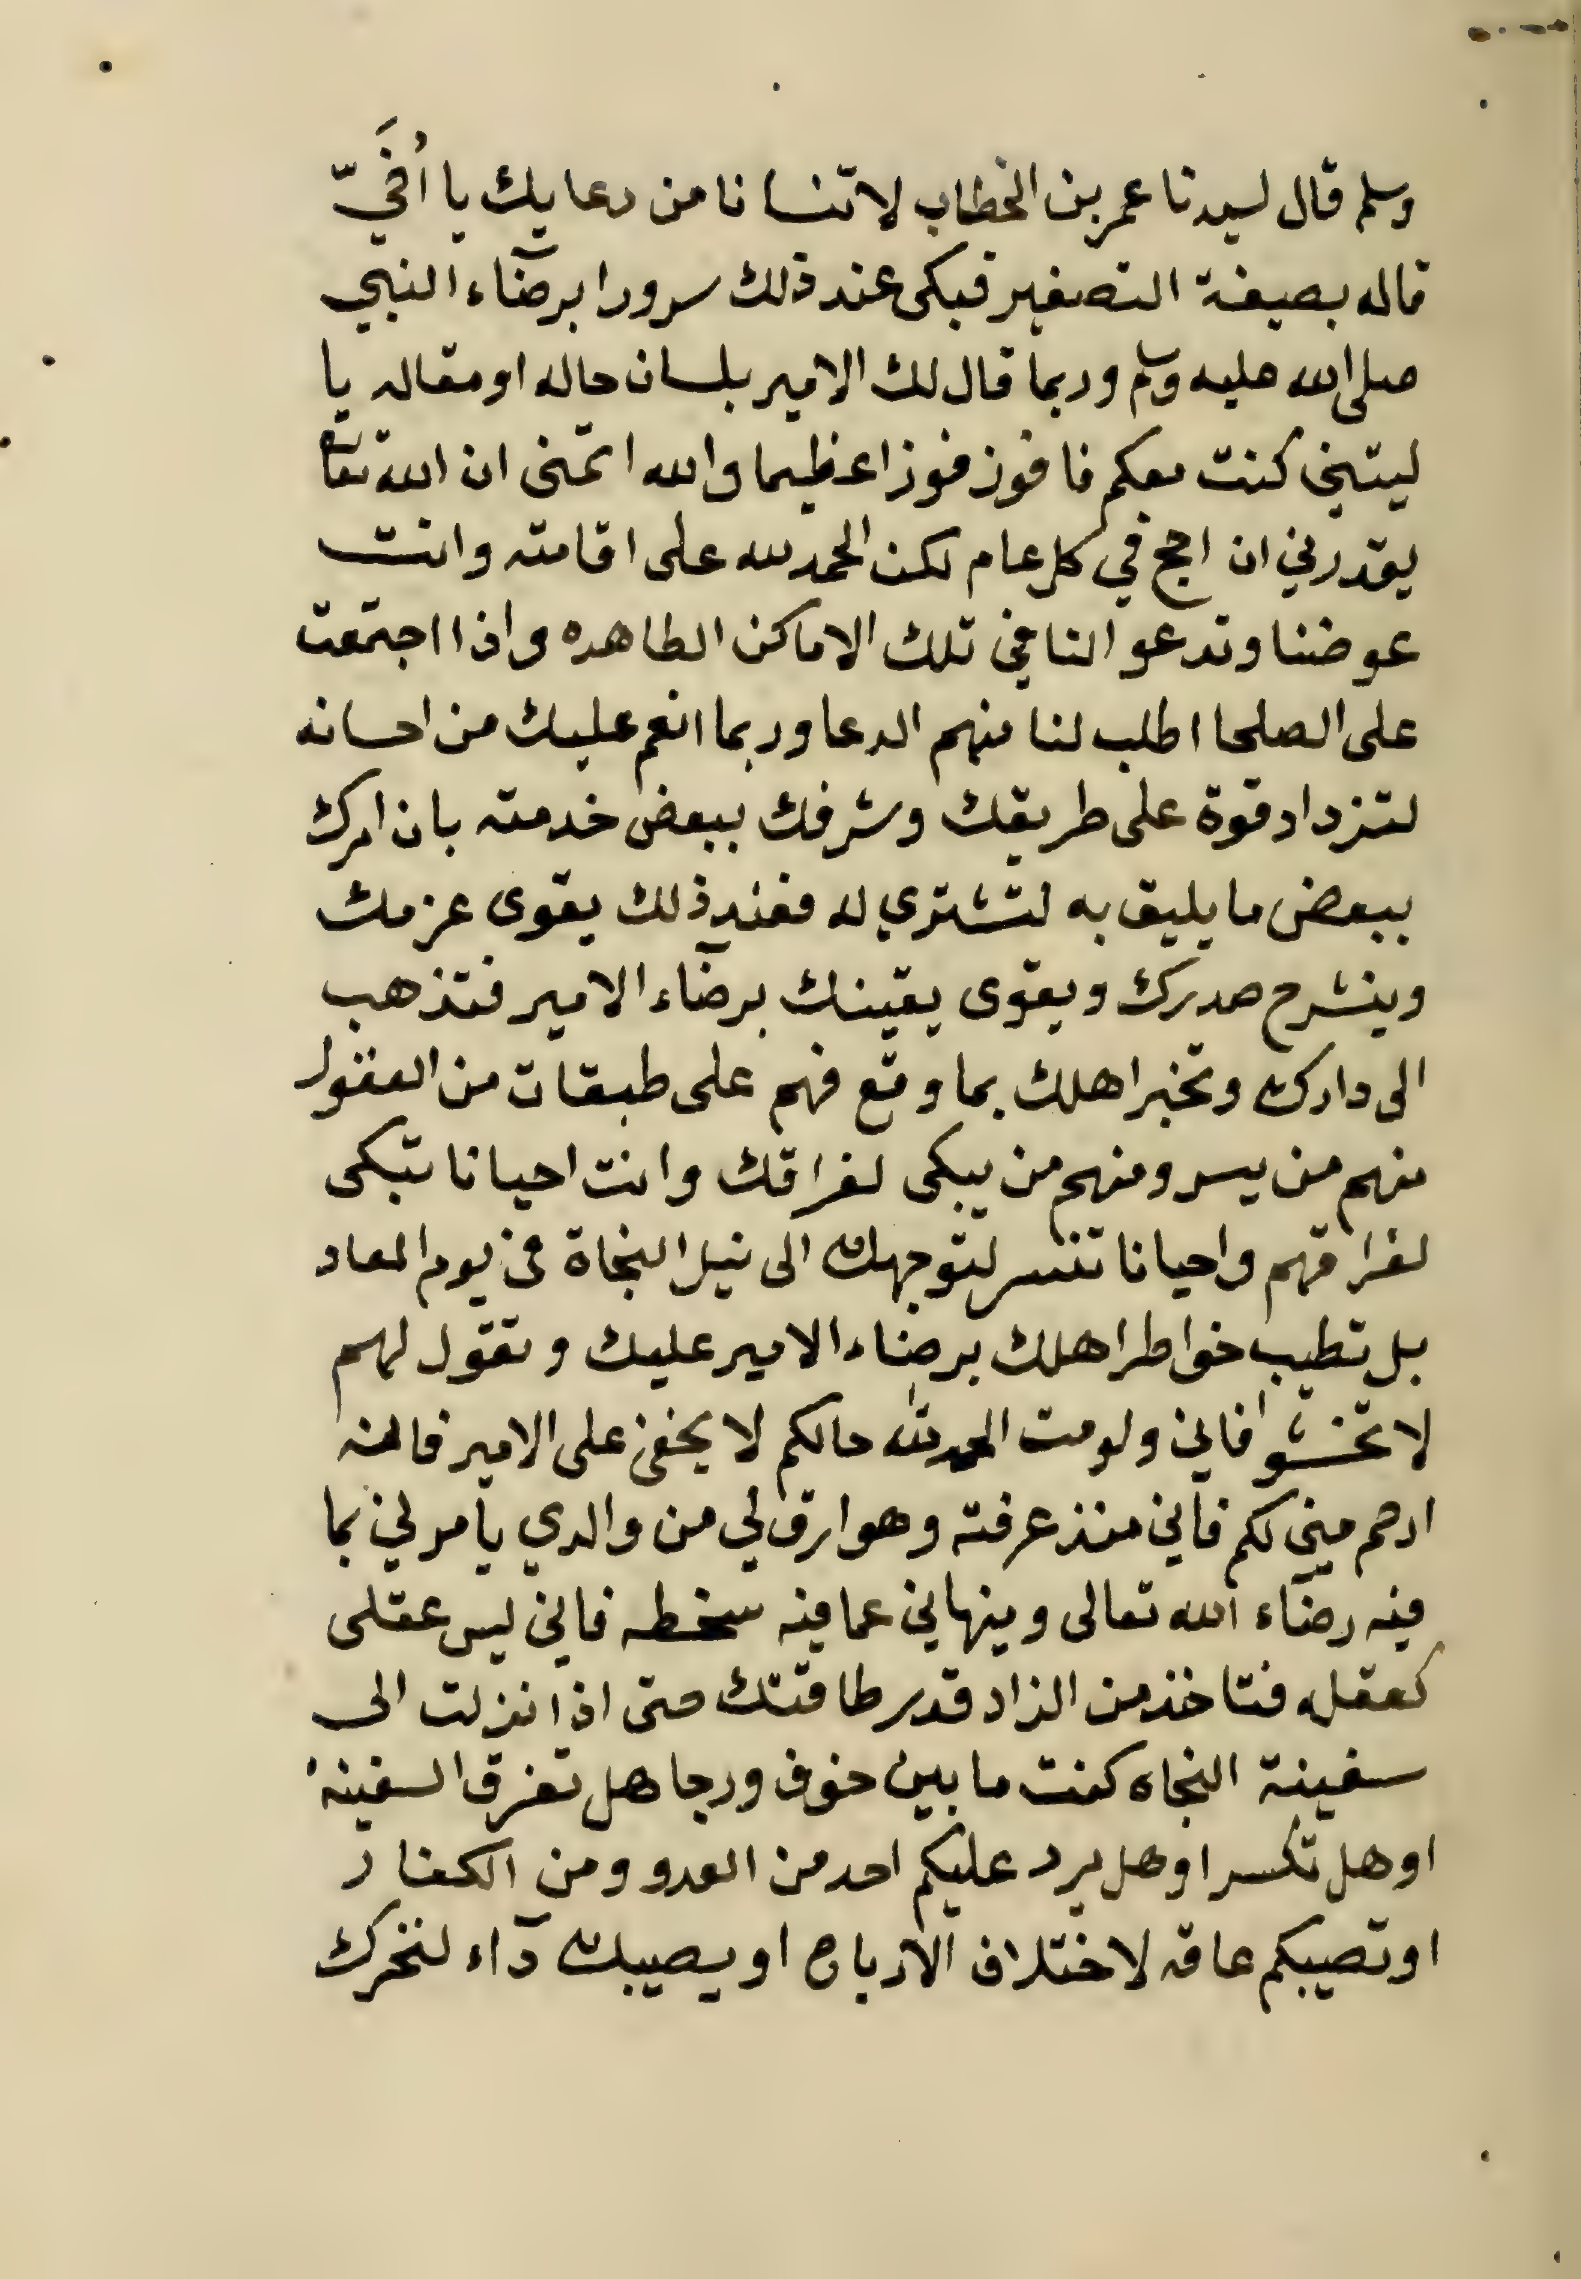 وسلم قال لسيدنا عمر بن الخطاب لا تنسانا من دعايك يا أُخَيّ
قاله بصيغة التصغير فبكى عند ذلك سرورا برضآء النبي
صلى الله عليه وسلم وربما قال لك الامير بلسان حاله او مقاله يا
ليتني كنت معكم فافوز فوزا عظيما والله اتمنى ان الله تعا
يقدرني ان احج في كل عام لكن الحمد لله على اقامته وانت
عوضنا وتدعوا لنا في تلك الاماكن الطاهره واذا اجتمعت
على الصلحا اطلب لنا منهم الدعا وربما انعم عليك من احسانه
لتزداد قوة على طريقك وشرفك ببعض خدمته بان امرك
ببعض ما يليق به لتشتري له فعند ذلك يقوى عزمك
وينشرح صدرك ويقوى يقينك برضآء الامير فتذهب
الى دارك وتخبر اهلك بما وقع فهم على طبقات من العقول
منهم من يسر ومنهم من يبكى لفراقك وانت احيانا تبكى
لفراقهم واحيانا تنسر لتوجهك الى نيل النجاة في يوم المعاد
بل تطيب خواطر اهلك برضاء الامير عليك وتقول لهم
لا تخشوا فاني ولو مت الحمد لله حالكم لا يخفى على الامير فانه
ارحم مني لكم فاني منذ عرفته وهو ارق لي من والدي يامرني بما
فيه رضآء الله تعالى وينهاني عما فيه سخطه فاني ليس عقلى
كعقله فتاخذ من الزاد قدر طاقتك حتى اذا نزلت الى
سفينة النجاه كنت ما بين خوف ورجا هل تغرق السفينة
او هل تكسر او هل يرد عليكم احد من العدو ومن الكفار
او تصيبكم عاقه لاختلاف الارياح او يصيبك دآء لتحرك